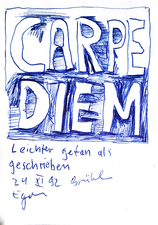 CARPE
DIEM
Leichter getan als
geschrieben
29 XI 92 Brühl